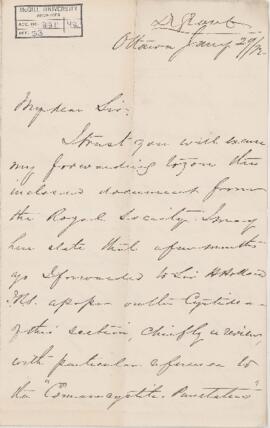 McGILL UNIVERSITY
ARCHIVES
ACC. NO.
REF. 53
Dr Grant
Ottawa Jany 29/
My dear Sir,
I trust you will excuse
my forwarding to you this
inclosed document from
the Royal Society. I may
here state that a few months
ago I forwarded to Sir H Holland
a paper on the Cystidea
of this section, chiefly a review,
with particular reference to
the "Comarocystites Punctatus"